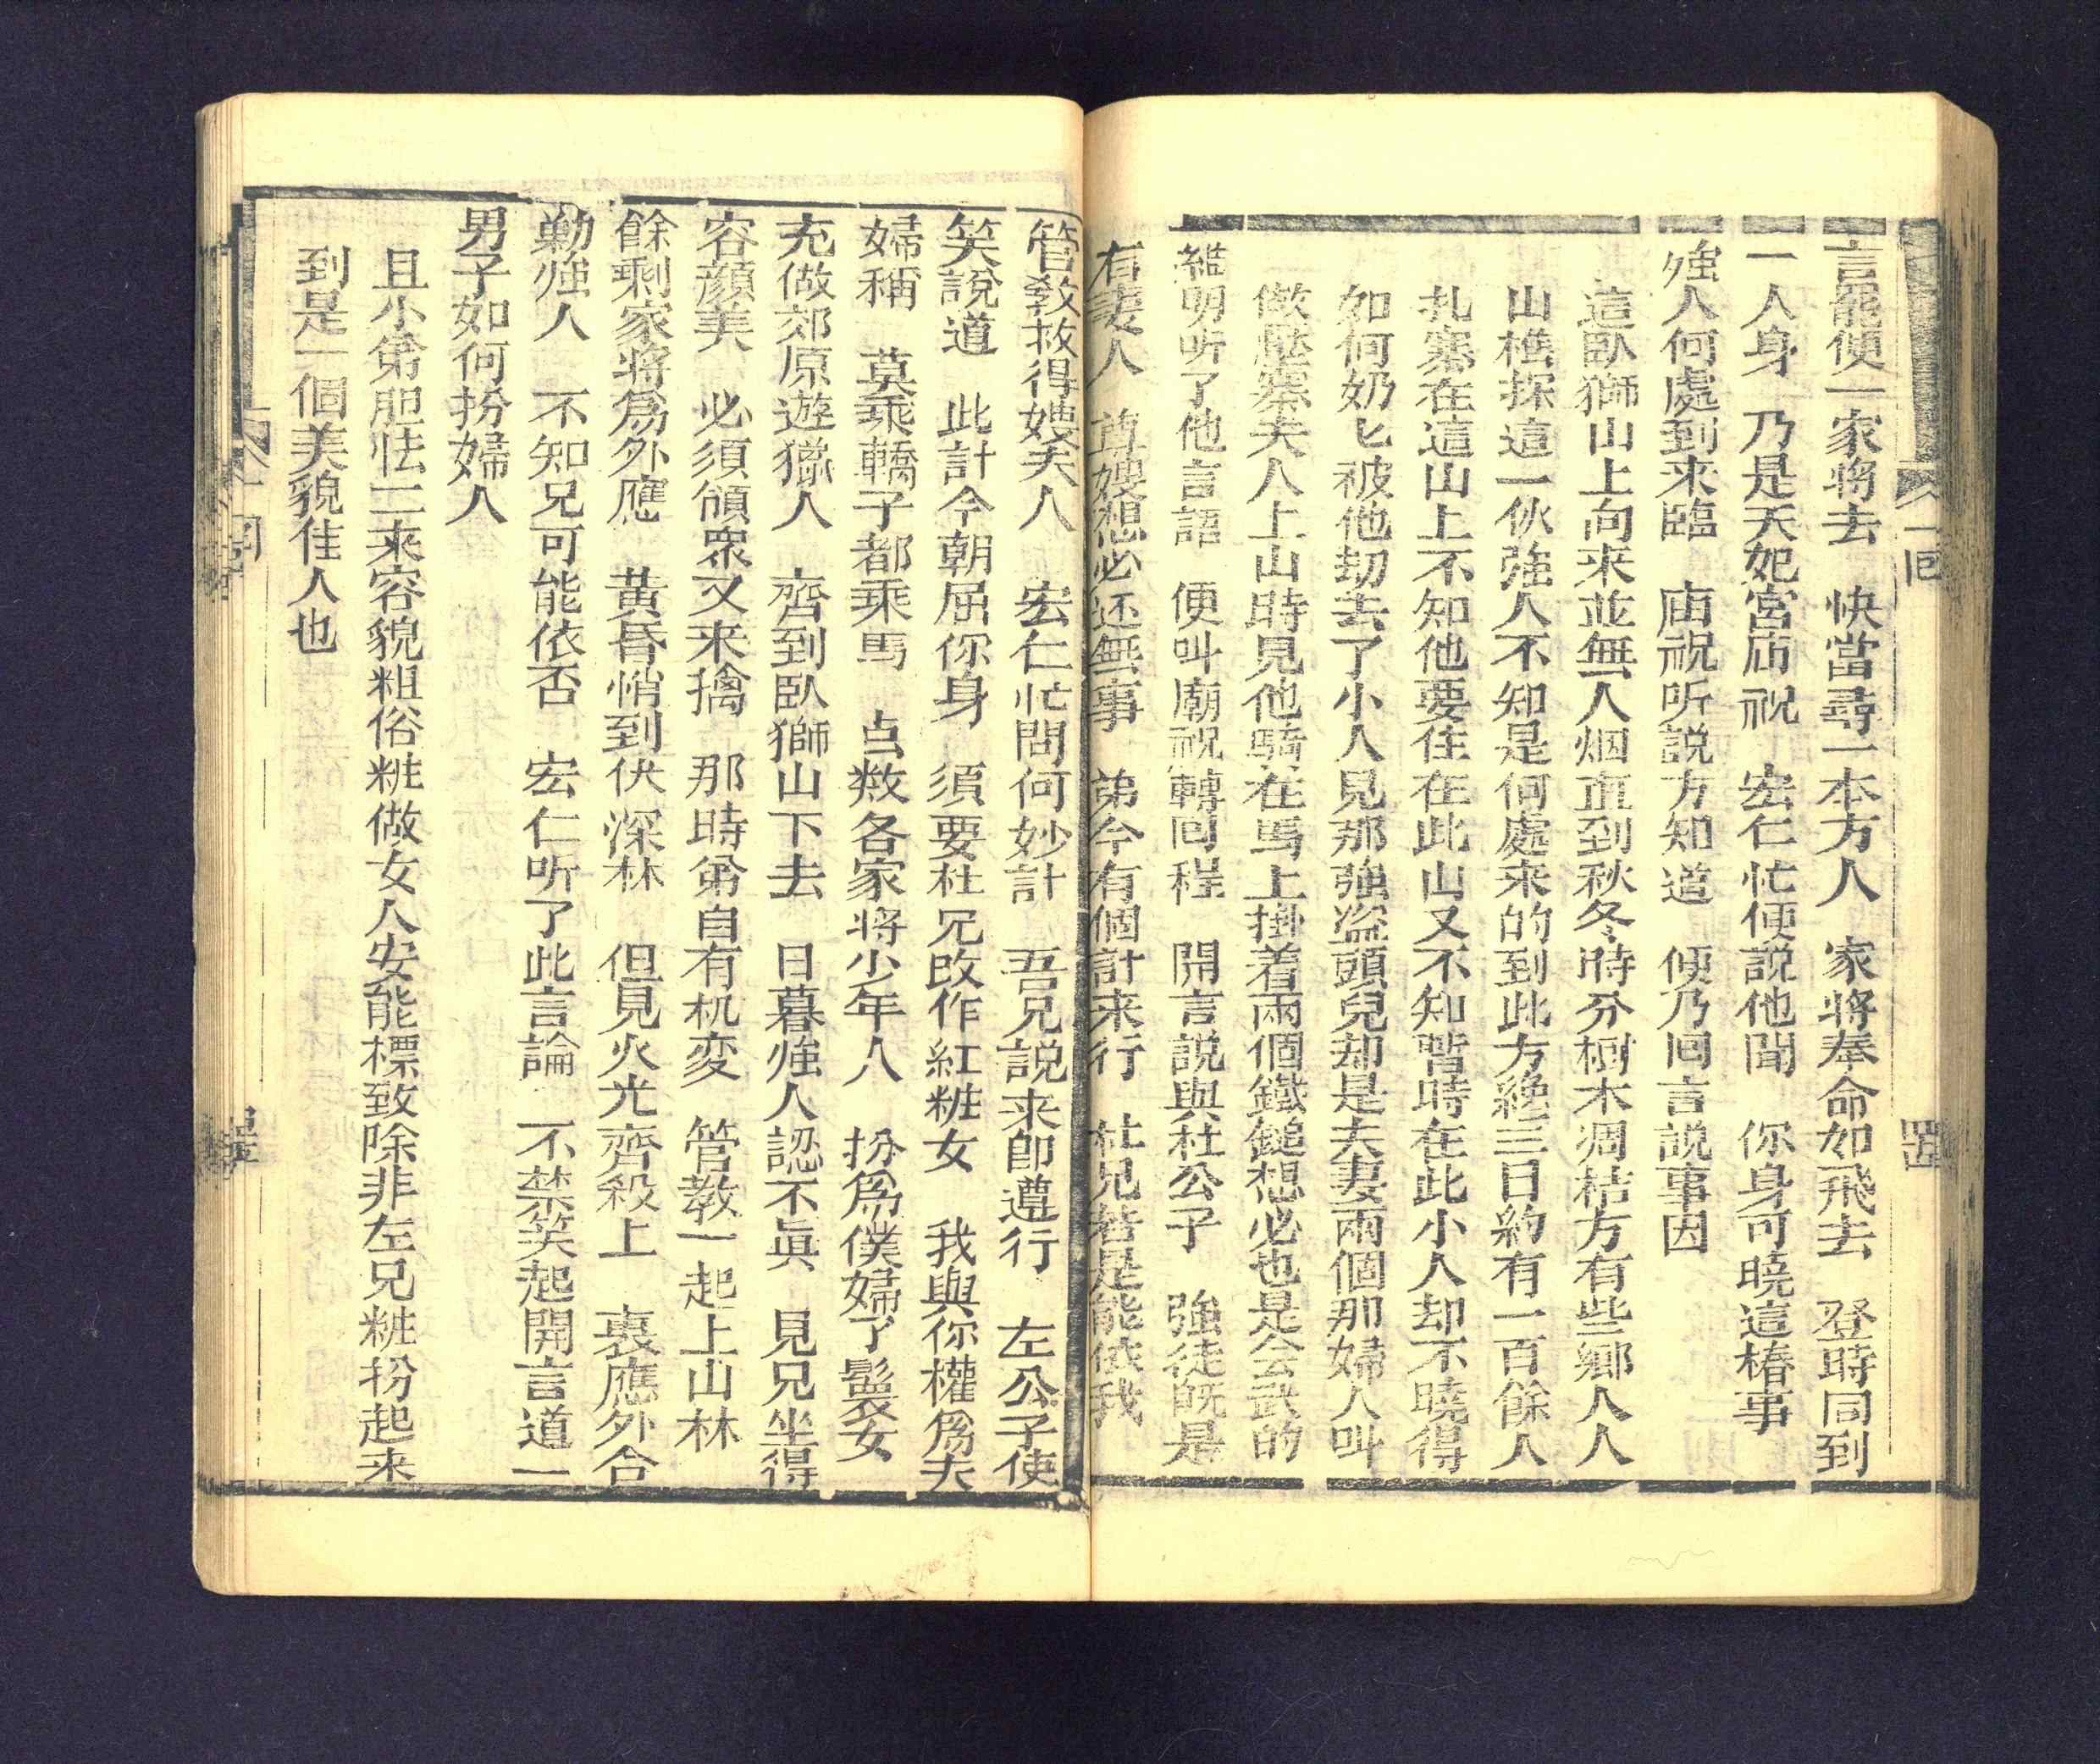 言罷便一家將去　快當尋一本方人　家將奉命如飛去　登時同到
一人身　乃是天妃宮庙祝　宏仁忙便説他聞　你身可曉這樁事
強人何處到来臨　庙祝听説方知道　便乃囘言説事因
這臥獅山上向来並無人烟直到秋冬時分樹木凋枯方有些鄉人人
山樵採這一伙強人不知是何處来的到此方纔三日約有一百餘人
扎寨在這山上不知他要住在此山又不知暫時在此小人却不曉得
如何奶匕被他刼去了小人見那強盗頭兒却是夫妻兩個那婦人叫
做壓寨夫人上山時見他騎在馬上掛着兩個鐵鎚想必也是会武的
維明听了他言語　便叫廟祝轉囘程　開言説與杜公子　強徒既是
有妻人　尊嫂想必还無事　弟今有個計来行　杜兄若是能依我
管教救得嫂夫人　宏仁忙問何妙計　吾兄説来卽遵行　左公子使
笑說道　此計今朝屈你身　須要杜兄改作紅粧女　我與你權爲夫
婦稱　莫乘轎子都乘馬　点数各家將少年人　扮爲僕婦了鬟女
充做郊原遊獵人　齊到臥獅山下去　日暮強人認不眞　見兄坐得
容顏美　必須領衆又来擒　那時弟自有机变　管教一起上山林
餘剩家將爲外應　黃昏悄到伏深林　但見火光齊殺上　裏應外合
勦強人　不知兄可能依否　宏仁听了此言論　不禁笑起開言道一
男子如何扮婦人
且小弟胆怯二来容貌粗俗粧做女人安能標致除非左兄粧扮起来
到是一個美貌佳人也